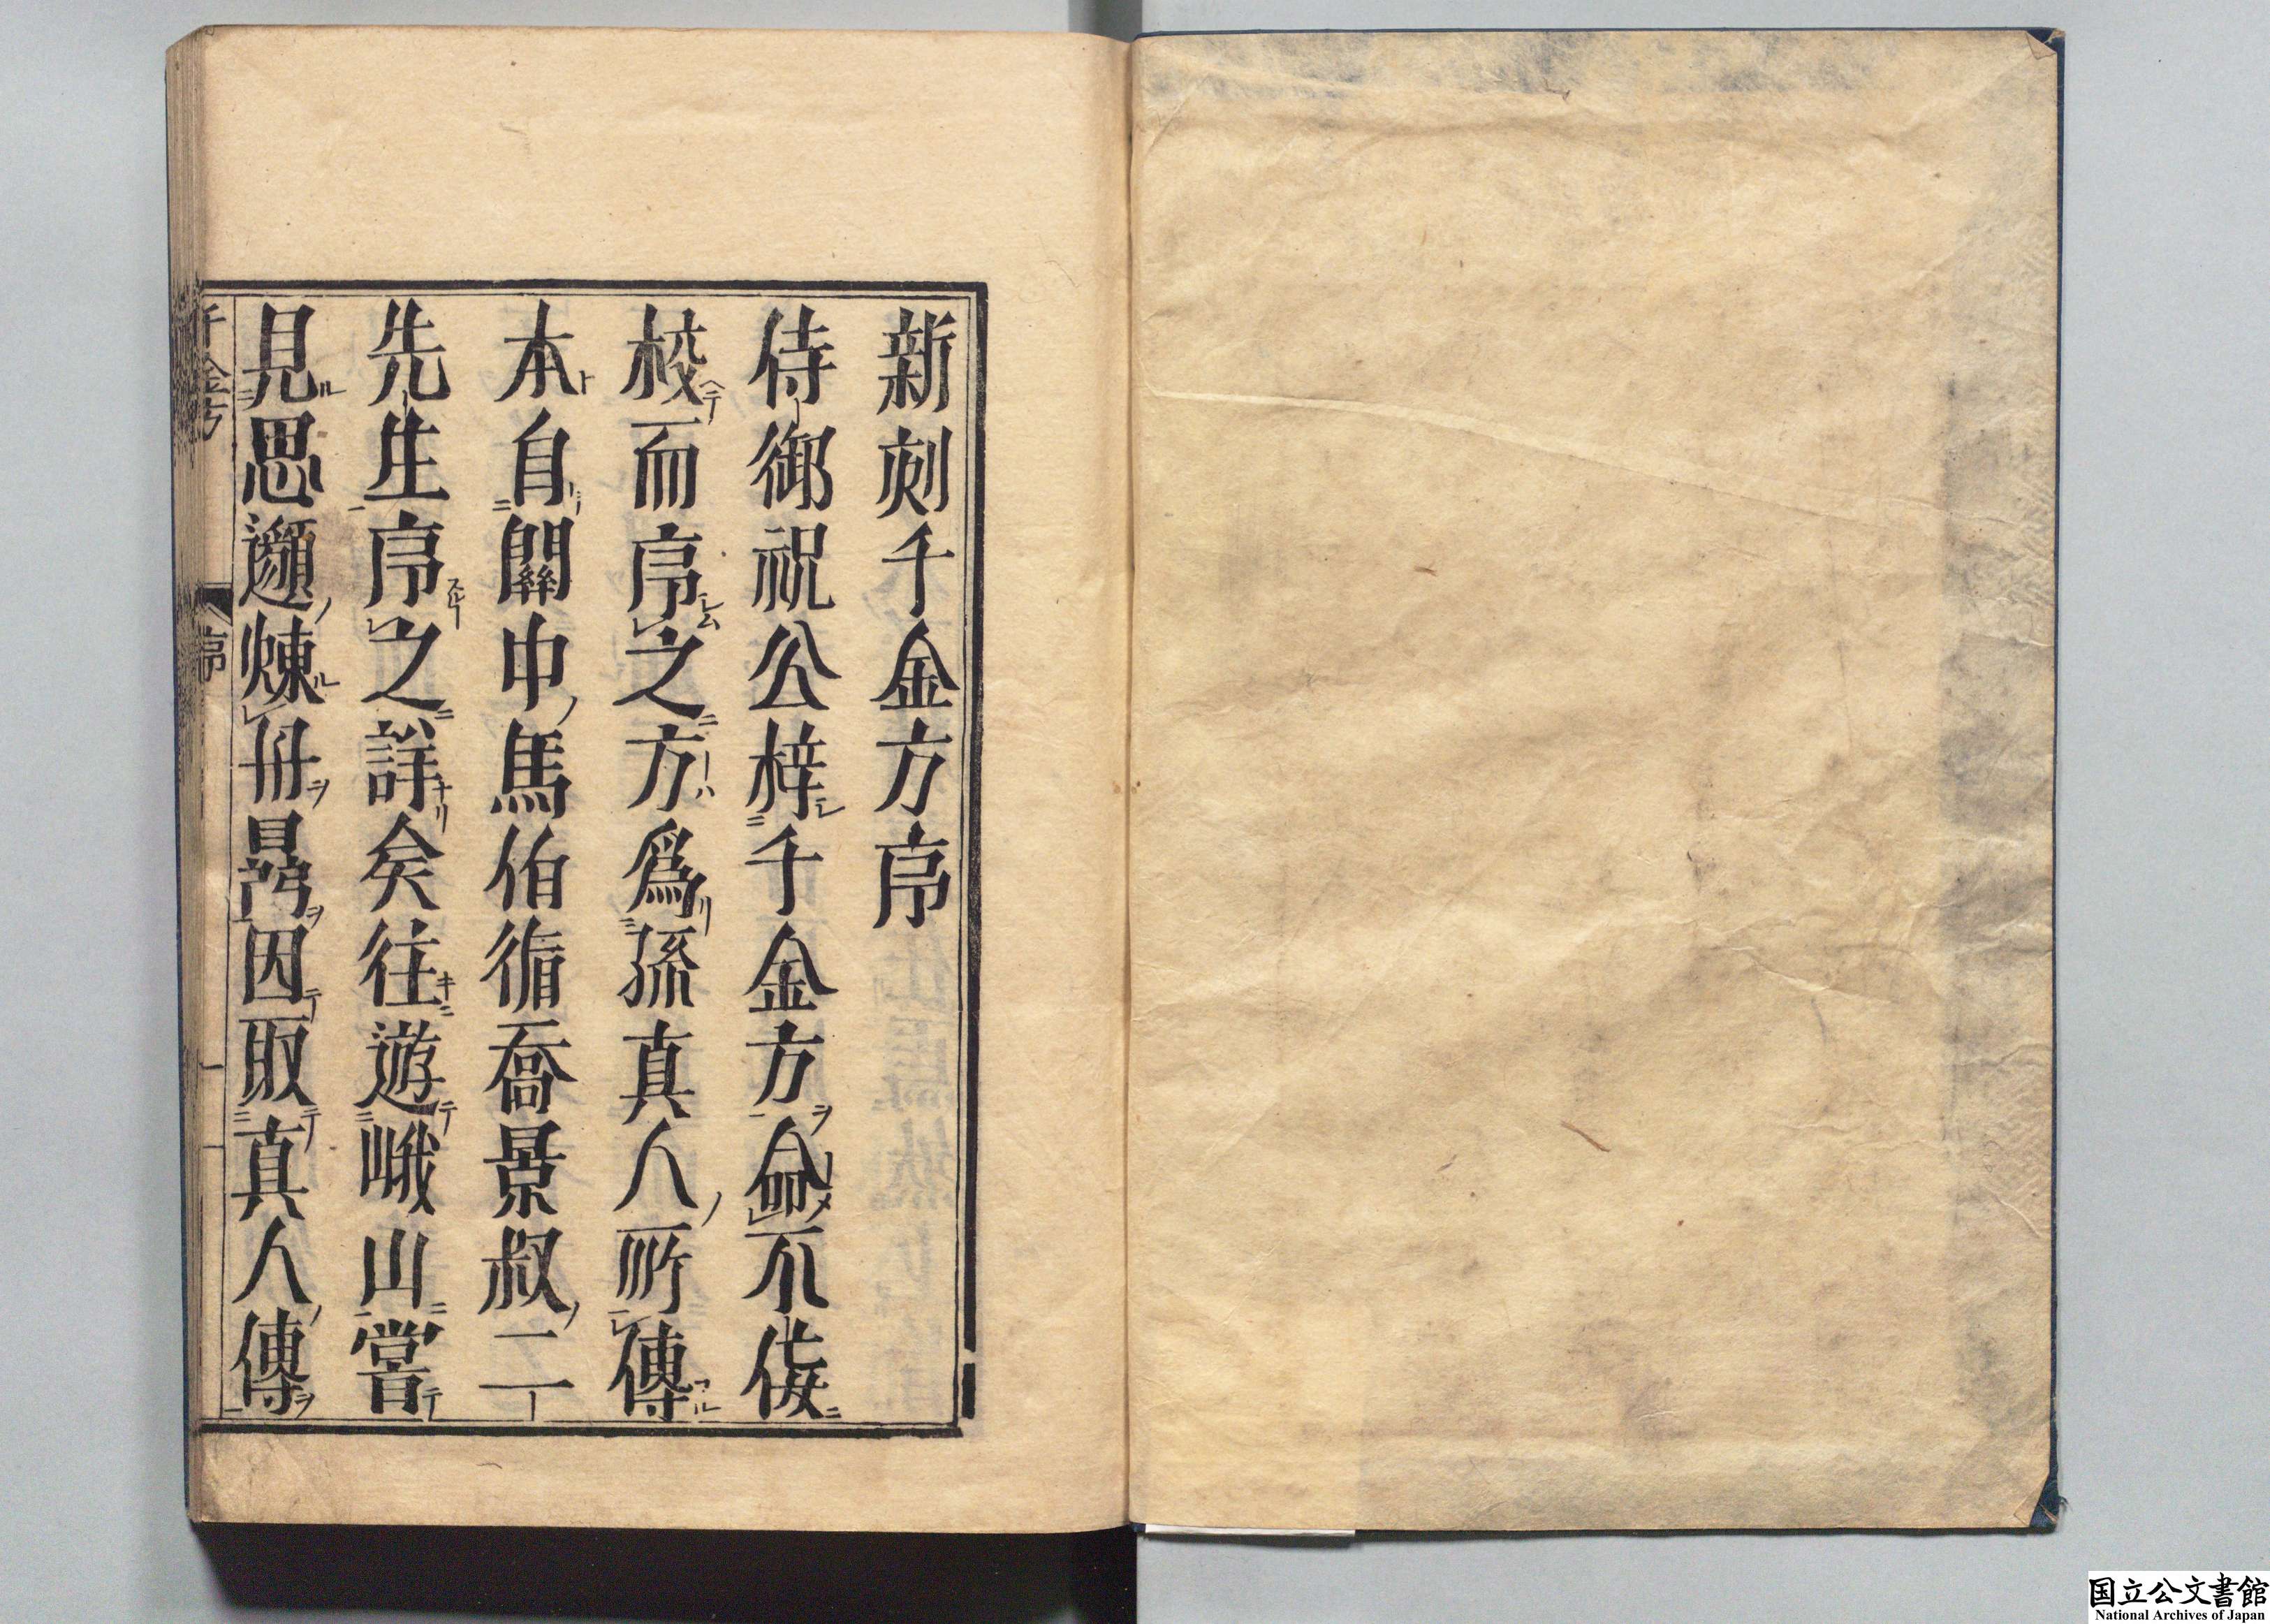 新刻千金方序
侍御祝公梓千金方命不佞
校而序之方爲孫真人所傳
本自關中馬伯循喬景叔二
先生序之詳矣往遊峨山嘗
見思邈煉丹𡶶因取真人傳
千金方
序
一
国立公文書館
National Archives of Japan